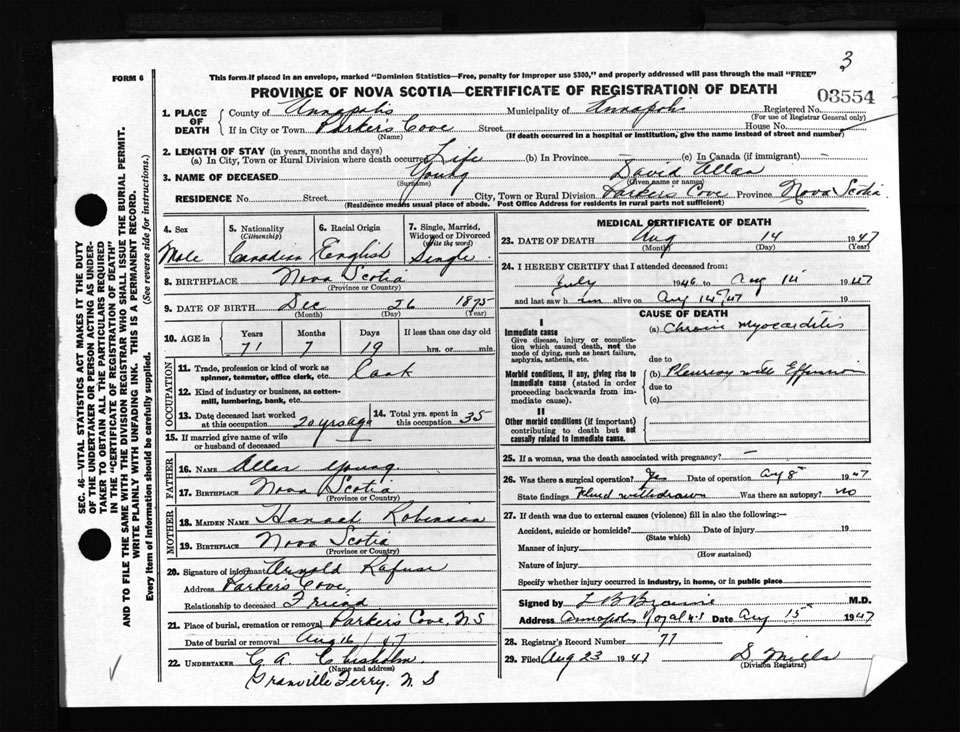 3
FORM 6
This form if placed in an envelope, marked "Dominion Statistics—Free, penalty for improper use $300," and properly addressed will pass through the mail "FREE"
PROVINCE OF NOVA SCOTIA—CERTIFICATE OF REGISTRATION OF DEATH
03554
1. PLACE OF DEATH
County of Annapolis Municipality of Annapolis Registered No.
(For use of Registrar General only)
If in City or Town Parker's Cove Street House No.
(Name) (If death occurred in a hospital or institution, give the name instead of street and number)
2. LENGTH OF STAY (in years, months and days)
(a) In City, Town or Rural Division where death occurred Life (b) In Province (c) In Canada (if immigrant) —
3. NAME OF DECEASED Young David Allan
(Surname) (Given name or names)
RESIDENCE No. Street City, Town or Rural Division Parkers Cove Province Nova Scotia
(Residence means usual place of abode. Post Office Address for residents in rural parts not sufficient)
4. Sex
Male
5. Nationality
(Citizenship)
Canadian
6. Racial Origin
English
7. Single, Married, Widowed or Divorced
(Write the word)
Single
8. BIRTHPLACE Nova Scotia
(Province or Country)
9. DATE OF BIRTH Dec 26 1875
(Month) (Day) (Year)
10. AGE in
Years Months Days If less than one day
71 7 19 hrs. or min.
OCCUPATION
11. Trade, profession or kind of work as
spinner, teamster, office clerk, etc. Cook
12. Kind of industry or business, as cotton-
mill, lumbering, bank, etc.
13. Date deceased last worked
at this occupation 20 yrs ago
14. Total yrs. spent in
this occupation 35
15. If married give name of wife
or husband of deceased —
FATHER
16. NAME Allan Young
17. BIRTHPLACE Nova Scotia
(Province or Country)
MOTHER
18. MAIDEN NAME Robinson
19. BIRTHPLACE Nova Scotia
(Province or Country)
20. Signature of informant Arnold Rafuse
Address Parker's Cove,
Relationship to deceased Friend
21. Place of burial, cremation or removal Parkers Cove, N S
Date of burial or removal Aug 16 / 47
22. UNDERTAKER C A Chisholm
(Name and address)
Granville Ferry. N. S
MEDICAL CERTIFICATE OF DEATH
23. DATE OF DEATH Aug 14 1947
(Month) (Day) (Year)
24. I HEREBY CERTIFY that I attended deceased from:
July 1946 to Aug 14 1947
and last saw him alive on Aug 14 /47 19
CAUSE OF DEATH
I
Immediate cause
Give disease, injury or complica-
tion which caused death, not the
mode of dying, such as heart failure,
asphyxia, asthenia, etc.
(a) Chronic Myocarditis
due to
Morbid conditions, if any, giving rise to
immediate cause (stated in order
proceeding backwards from im-
mediate cause).
(b) Pleurisy with Effusion
due to
(c)
II
Other morbid conditions (if important)
contributing to death but not
causally related to immediate cause.
25. If a woman, was the death associated with pregnancy? —
26. Was there a surgical operation? Yes Date of operation Aug 8 1947
State findings Fluid withdrawn Was there an autopsy? no
27. If death was due to external causes (violence) fill in also the following:—
Accident, suicide or homicide? Date of injury 19
(State which)
Manner of injury
(How sustained)
Nature of injury
Specify whether injury occurred in industry, in home, or in public place
Signed by M.D.
Address Annapolis Royal N.S Date Aug 15 1947
28. Registrar's Record Number 77
29. Filed Aug 23 1947 S. Mills
(Division Registrar)
SEC. 46—VITAL STATISTICS ACT MAKES IT THE DUTY
OF THE UNDERTAKER OR PERSON ACTING AS UNDER-
TAKER TO OBTAIN ALL THE PARTICULARS REQUIRED
IN THE "CERTIFICATE OF REGISTRATION OF DEATH"
AND TO FILE THE SAME WITH THE DIVISION REGISTRAR WHO SHALL ISSUE THE BURIAL PERMIT.
WRITE PLAINLY WITH UNFADING INK. THIS IS A PERMANENT RECORD.
Every item of information should be carefully supplied. (See reverse side for instructions.)